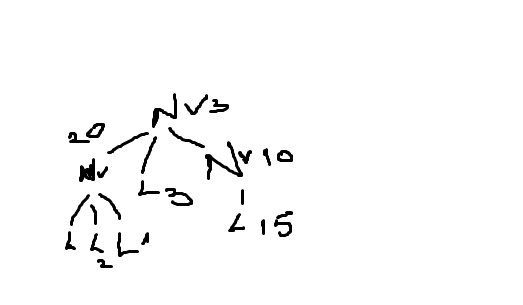 NV3
20
Nv
L 3
Nv 10
L L 2 L 1
L 15